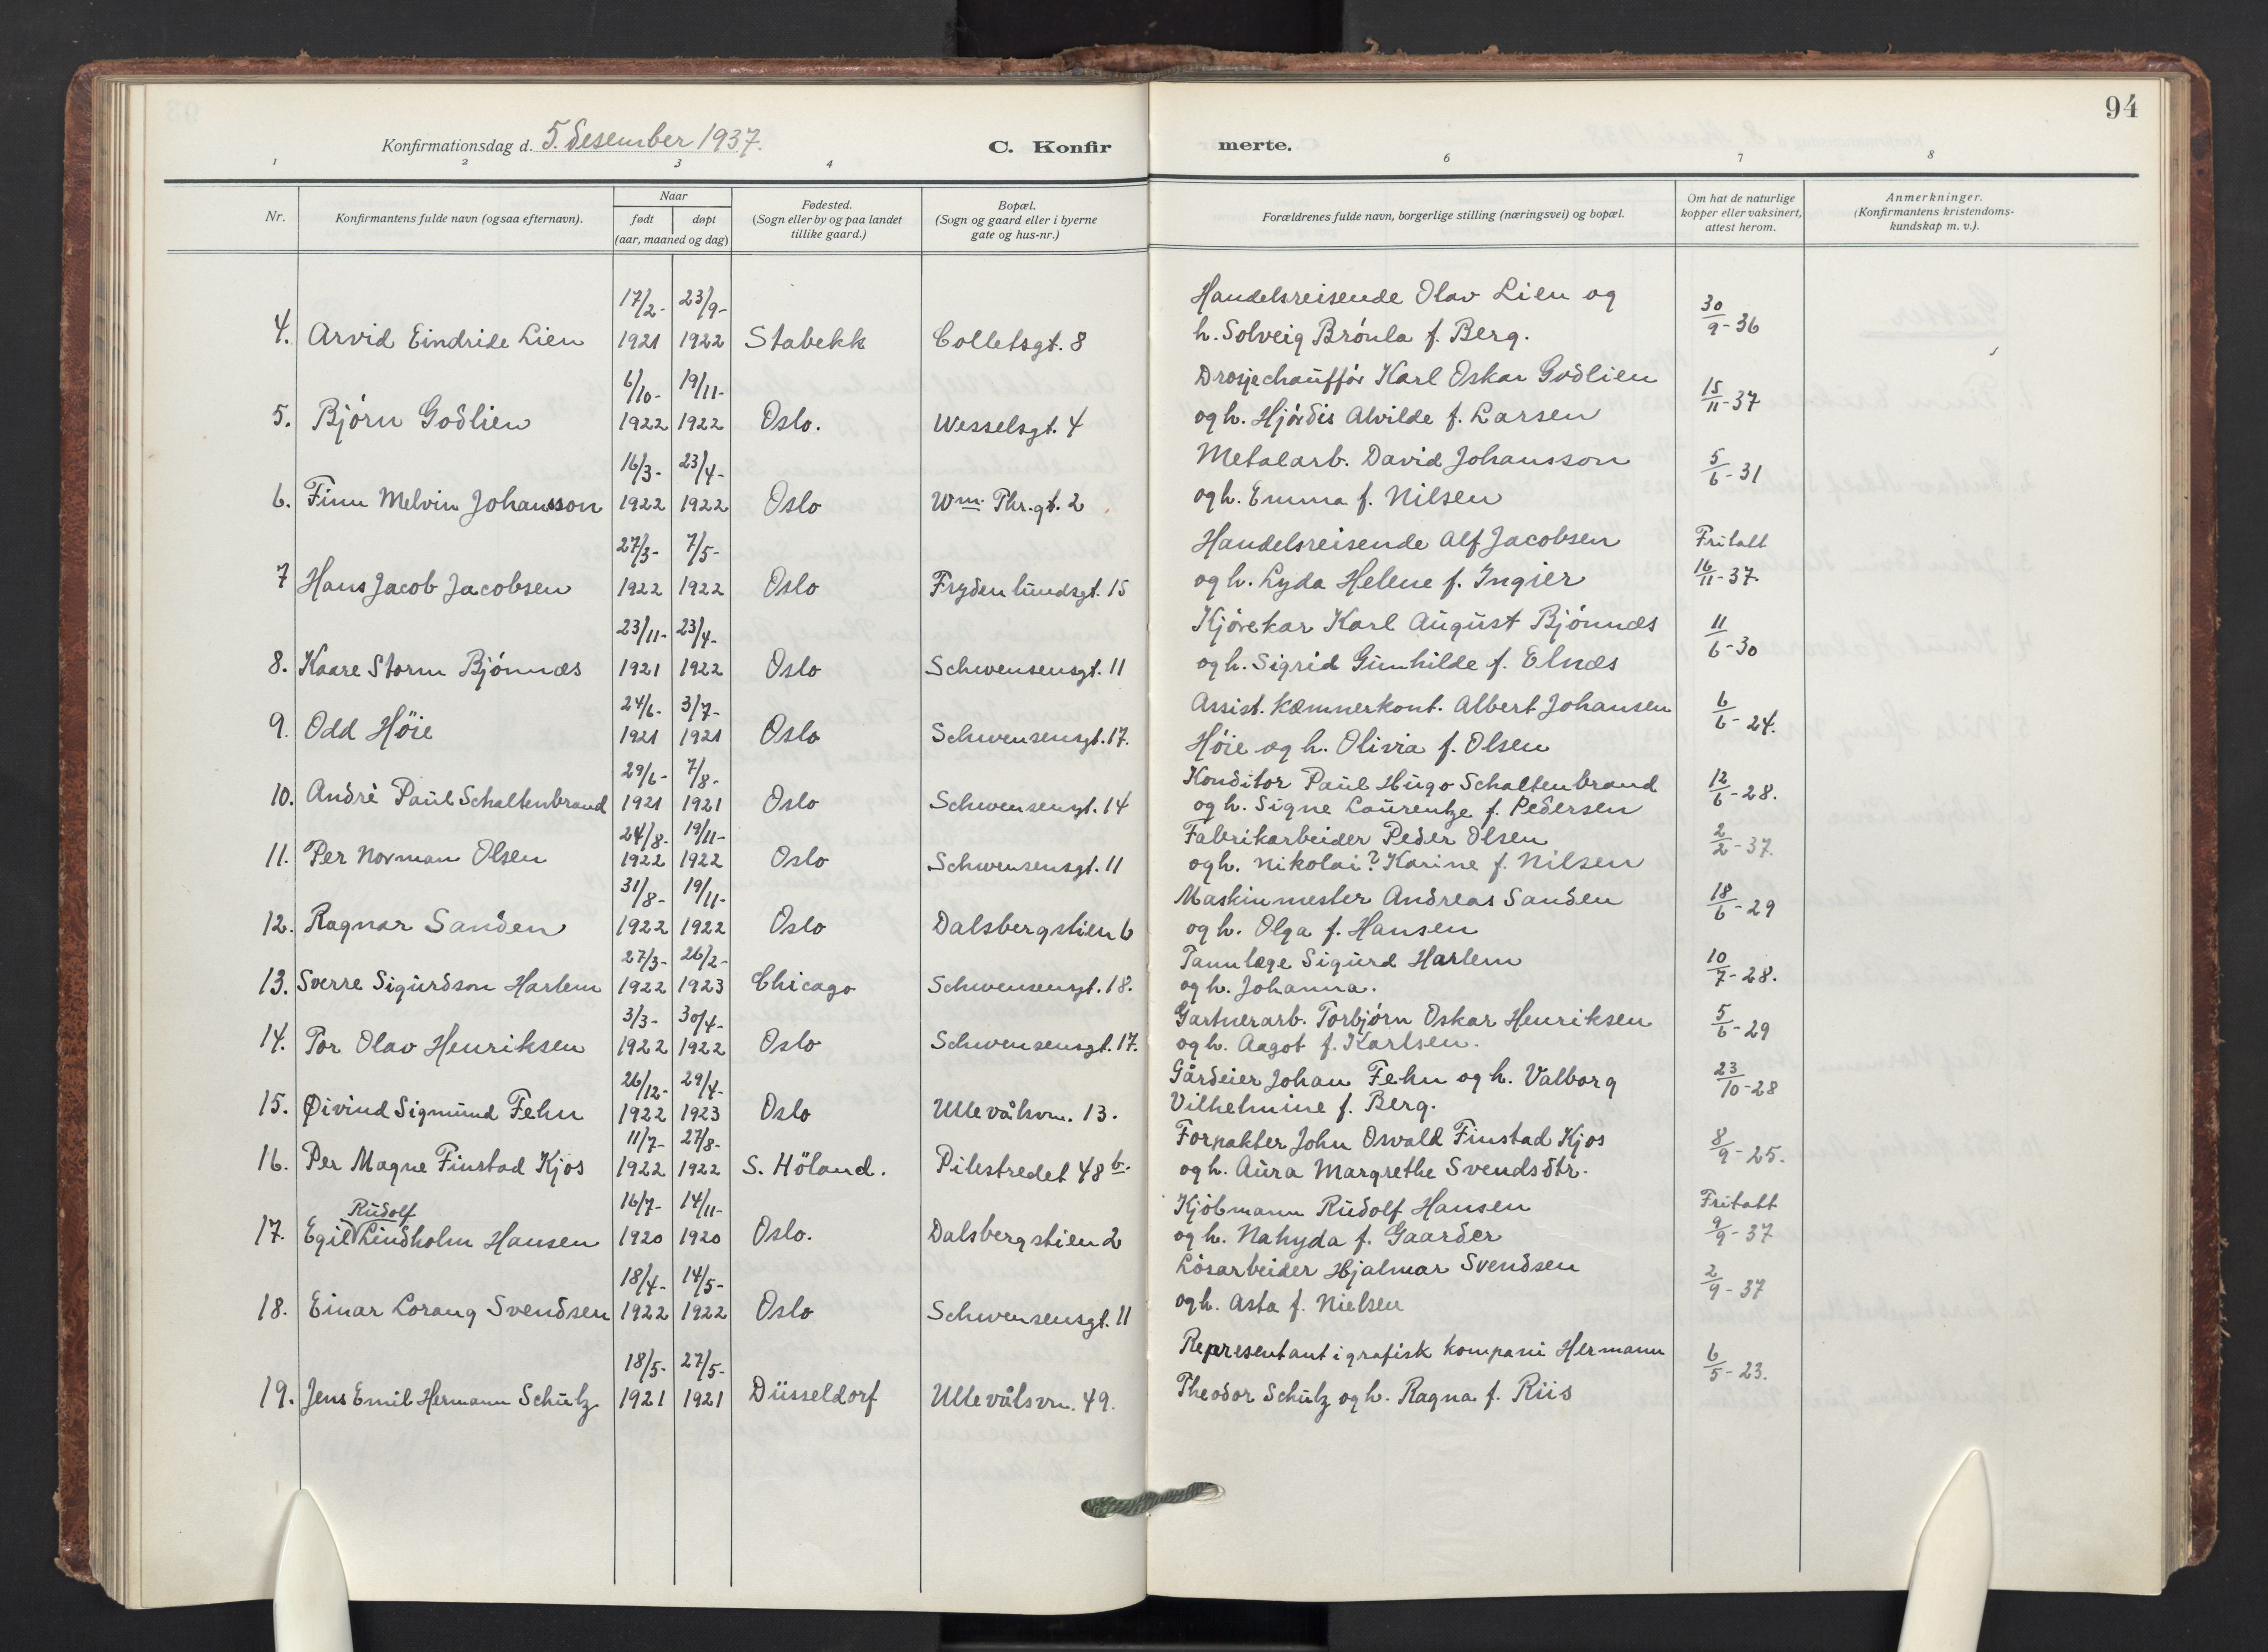 94
Konfirmationsdag d. 5. desember 1937.
C. Konfirmerte.
1 2 3 4 6 7 8
Nr.
Konfirmantens fulde navn (ogsaa efternavn).
Naar
født døpt
(aar, maaned og dag)
Fødested.
(Sogn eller by og paa landet
tillike gaard.)
Bopæl.
(Sogn og gaard eller i byerne
gate og hus-nr.)
Forældrenes fulde navn, borgerlige stilling (næringsvei) og bopæl.
Om hat de naturlige
kopper eller vaksinert,
attest herom.
Anmerkninger.
(Konfirmantens kristendoms-
kundskap m. v.).
17/2- 23/9- Handelsreisende Olav Lien og
4. Arvid Eindride Lien 1921 1922 Stabekk Colletsgt. 8 h. Solveig Brónla f. Berg. 30/9-36
6/10- 19/11- Drosjechauffór Karl Oskar Godlien
5. Bjórn Godlien 1922 1922 Oslo. Wesselsgt. 4 og h. Hjórdis Alvilde f. Larsen 15/11-37
16/3- 23/4- Metalarb. David Johansson
6. Finn Melvin Johansson 1922 1922 Oslo Wm. Thr. gt. 2 og h. Emma f. Nilsen 5/6-31
27/3- 7/5- Handelsreisende Alf Jacobsen Fritatt
7 Hans Jacob Jacobsen 1922 1922 Oslo Frydenlundsgt. 15 og h. Lyda Helene f. Ingier 16/11-37.
23/11- 23/4- Kjórekar Karl August Bjónnæs
8. Kaare Storm Bjónnæs 1921 1922 Oslo Schwensensgt. 11 og h. Sigrid Gunhilde f. Elnæs 11/6-30
24/6- 3/7- Assist. kæmnerkont. Albert Johansen
9. Odd Höie 1921 1921 Oslo Schwensensgt. 17. Hóie og h. Olivia f. Olsen 6/6-24.
29/6- 7/8- Konditor Paul Hugo Schaltenbrand
10. André Paul Schaltenbrand 1921 1921 Oslo Schwensensgt. 14 og h. Signe Laurentze f. Pedersen 12/6-28.
24/8- 19/11- Fabrikarbeider Peder Olsen
11. Per Norman Olsen 1922 1922 Oslo Schwensensgt. 11 og h. Nikolai? Karine f. Nilsen 2/2-37.
31/8- 19/11- Maskinmester Andreas Sanden
12. Ragnar Sanden 1922 1922 Oslo Dalsbergstien 6 og h. Olga f. Hansen 18/6-29
27/3- 26/2- Tannlæge Sigurd Harlem
13. Sverre Sigurdson Harlem 1922 1923 Chicago Schwensensgt. 18. og h. Johanna. 10/7-28.
3/3- 30/4- Gartnerarb. Torbjórn Oskar Henriksen
14. Tor Olav Henriksen 1922 1922 Oslo Schwensensgt. 17. og h. Aagot f. Karlsen. 5/6-29
26/12- 29/4- Gårdeier Johan Fehn og h. Valborg
15. Øivind Sigmund Fehn 1922 1923 Oslo Ullevålsvn. 13. Vilhelmine f. Berg. 23/10-28
11/7- 27/8- Forpakter John Osvald Finstad Kjos
16. Per Magne Finstad Kjos 1922 1922 S. Höland. Pilestredet 48 b. og h. Aura Margrethe Svendsdtr. 8/9-25.
Rudolf 16/7- 14/11- Kjóbmann Rudolf Hansen Fritatt
17. Egil Lindholm Hansen 1920 1920 Oslo. Dalsbergstien 2 og h. Nahyda f. Gaarder 9/9-37
18/4- 14/5- Lósarbeider Hjalmar Svendsen
18. Einar Lorang Svendsen 1922 1922 Oslo Schwensensgt. 11 og h. Asta f. Nielsen 2/9-37
18/5- 27/5- Representant i grafisk kompani Hermann
19. Jens Emil Hermann Schulz 1921 1921 Düsseldorf Ullevålsvn. 49. Theodor Schulz og h. Ragna f. Riis 6/5-23.